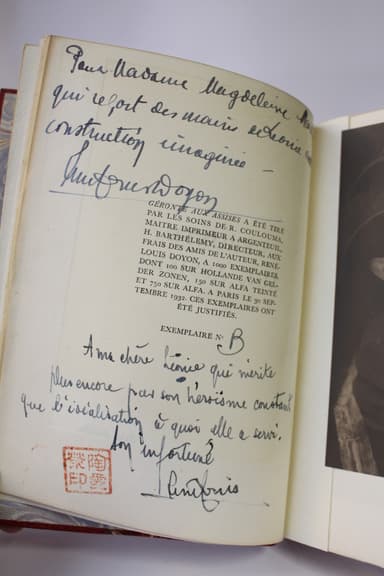 Pour Madame Magdeleine
qui ressort des mains de Léonie
construction imaginée —
GÉRONTE AUX ASSISES A ÉTÉ TIRÉ
PAR LES SOINS DE R. COULOUMA,
MAITRE IMPRIMEUR A ARGENTEUIL,
H. BARTHÉLEMY, DIRECTEUR, AUX
FRAIS DES AMIS DE L'AUTEUR, RENÉ-
LOUIS DOYON, A 1000 EXEMPLAIRES
DONT 100 SUR HOLLANDE VAN GEL-
DER ZONEN, 150 SUR ALFA TEINTÉ
ET 750 SUR ALFA. A PARIS LE 30 SEP-
TEMBRE 1932. CES EXEMPLAIRES ONT
ÉTÉ JUSTIFIÉS.
EXEMPLAIRE N° B
A ma chère Léonie qui mérite
plus encore par son héroïsme constant
que l'idéalisation à quoi elle a servi.
Son infortuné